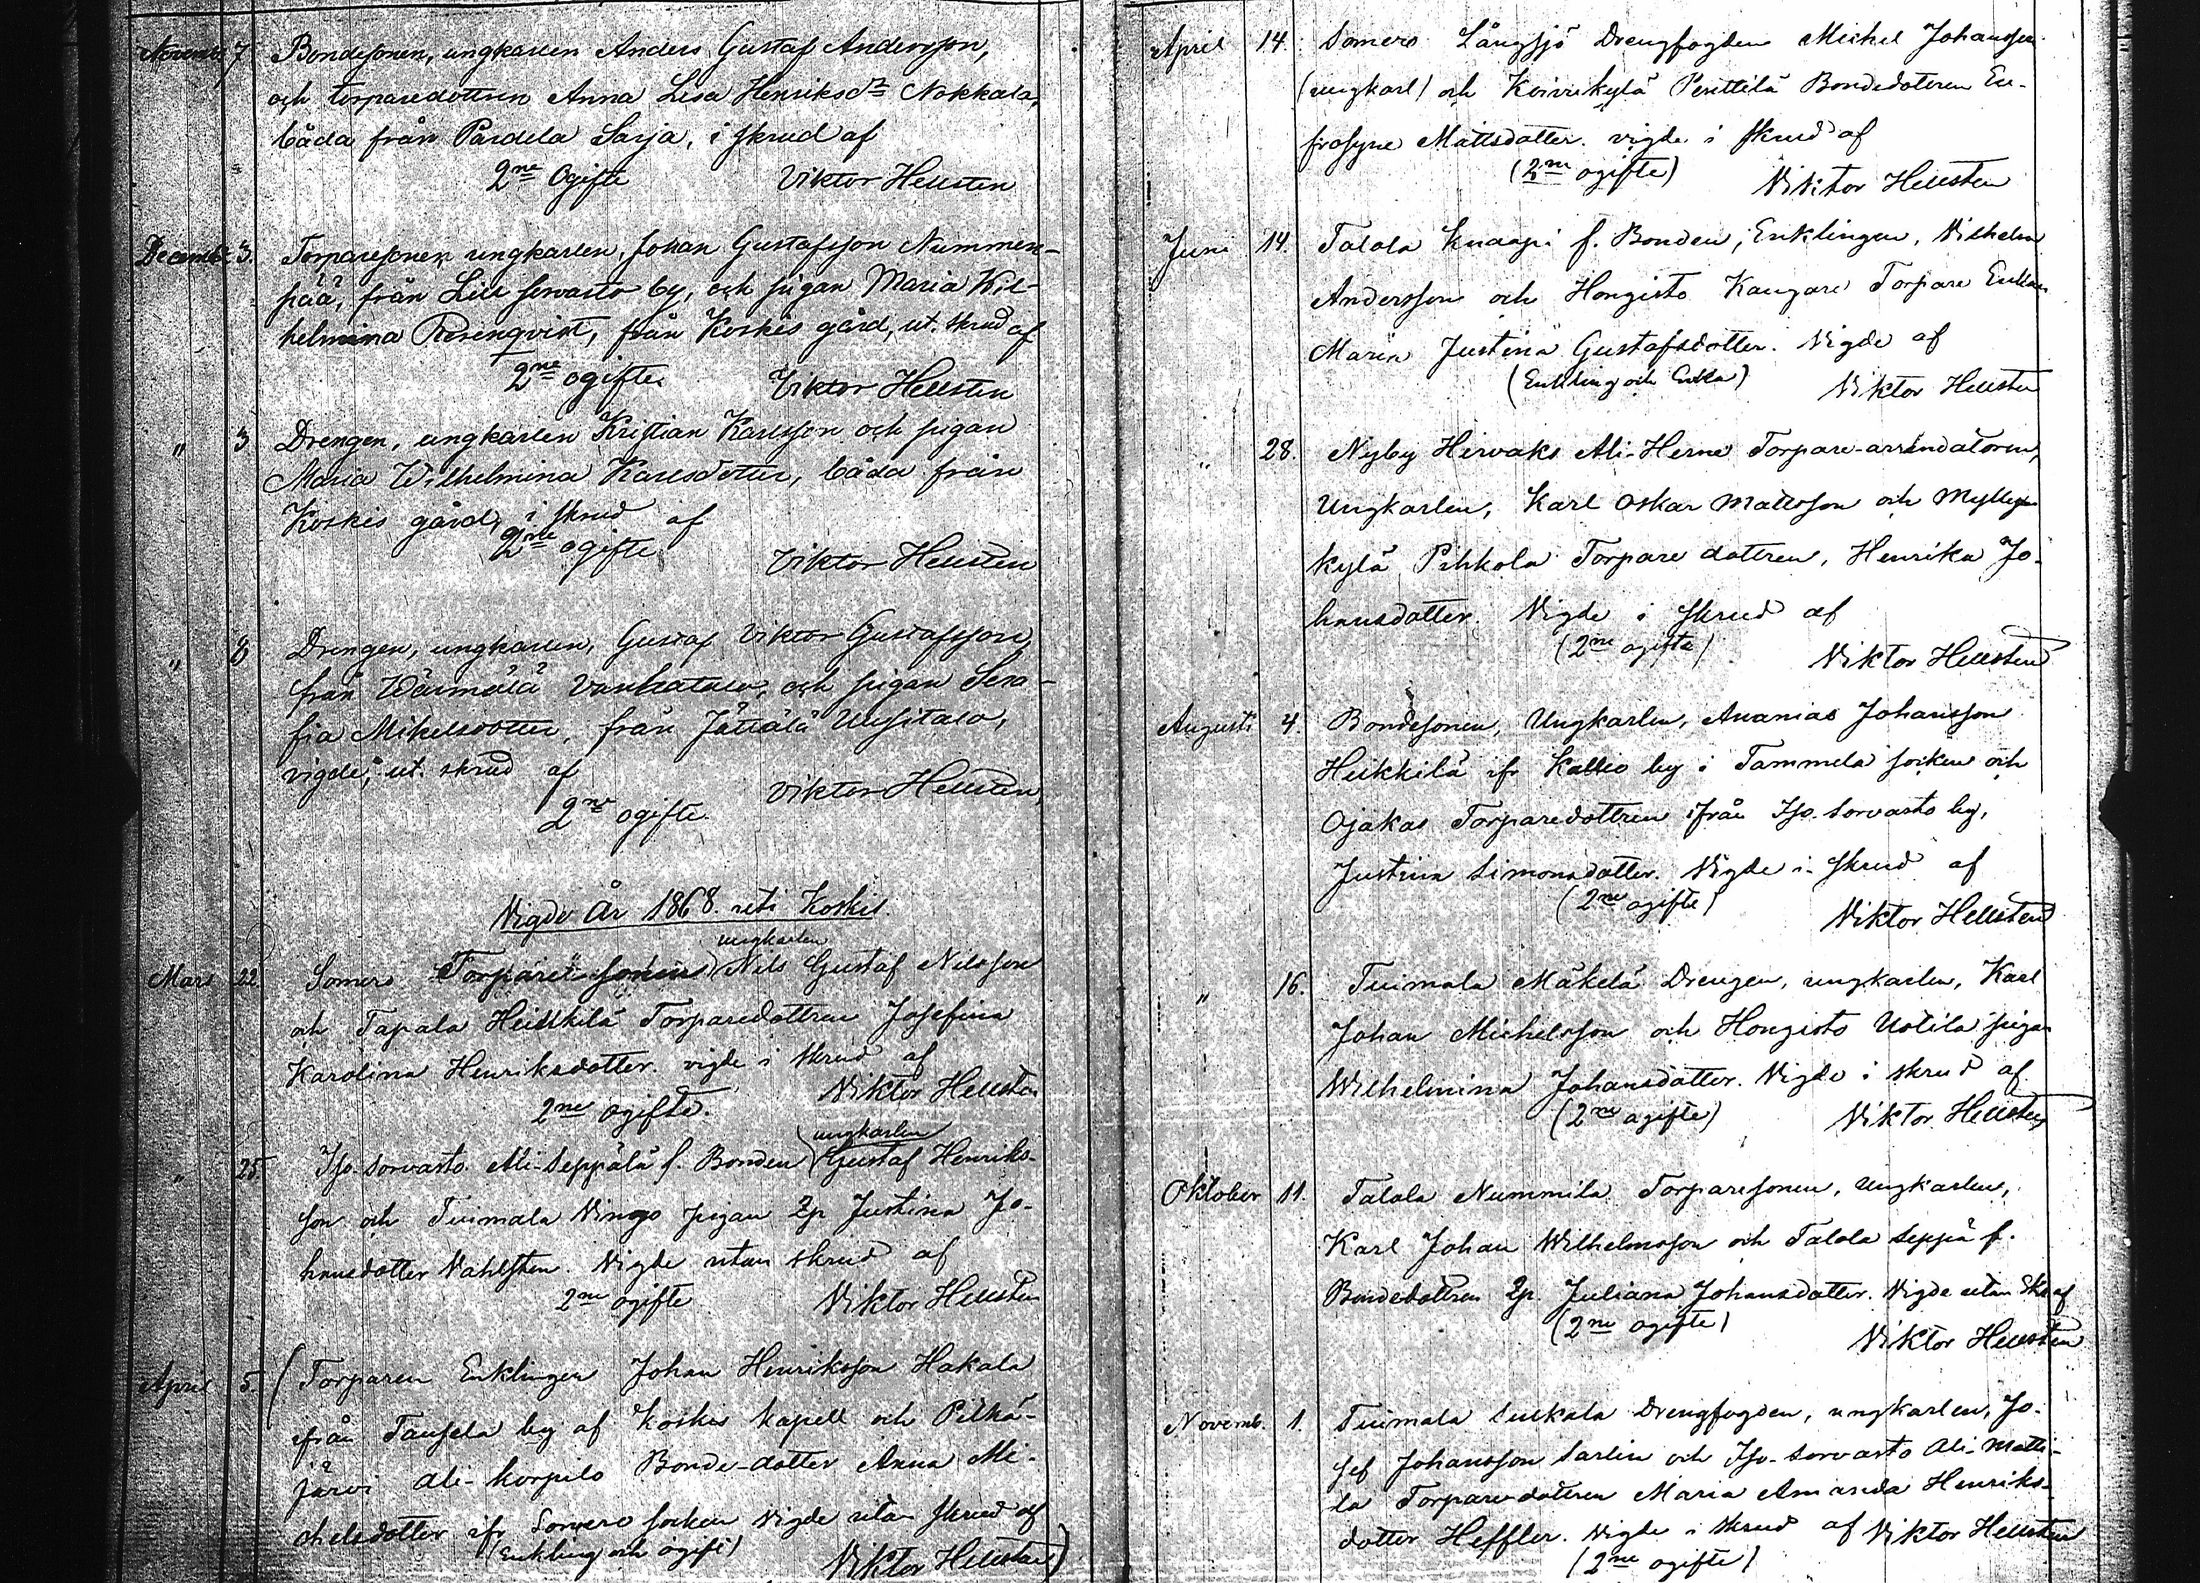 November 7. Bondesonen, ungkarlen Anders Gustaf Andersson,
och torparedottren Anna Lisa Henriksdr Nokkala,
båda från Pardela Sarja, i skrud af
2ne Ogifte Viktor Hellsten
December 3. Torparesonen ungkarlen, Johan Gustafsson Nummen-
pää, från Lill sorvasto by, och pigan Maria Wil-
helmina Rosenqvist, från Koskis gård, ut. skrud af
2ne ogifte. Viktor Hellsten
" 3 Drengen, ungkarlen Kristian Karlsson och pigan
Maria Wilhelmina Karlsdotter, båda från
Koskis gård, i skrud af
2ne ogifte Viktor Hellsten
" Drengen, ungkarlen, Gustaf Viktor Gustafsson
från Wärmälä Vanhatalo, och pigan Sera-
fia Mikelsdotter, från Jättälä Uusitalo,
vigde, ut. skrud af
2ne ogifte. Viktor Hellsten,
Vigde År 1868. uti Koskis.
ungkarlen
Mars 22 Somero Torpare-sonen Nils Gustaf Nilsson
och Tapala Heikkilä Torparedottren Josefina
Karolina Henriksdotter. vigde i skrud af
2ne ogifte. Viktor Hellsten
ungkarlen
" 25. Iso-sorvasto. Ali-Seppälä f. Bonden Gustaf Henriks-
son och Tuimala pigan Justina Jo-
hansdotter Vahlsten. Vigde utan skrud af
2ne ogifte Viktor Hellsten
April 5. (Torparen Enklingen Johan Henriksson Hakala
ifrån by af Koskis kapell och Pitkä-
järvi Ali-korpilo Bonde-dotter Anna Mi-
chelsdotter ifr Somero socken Vigde utan skrud af
(Enkling och ogift) Viktor Hellsten)
April 14. Somero Långsjö Drengfogden Michel Johansson
(ungkarl) och Koivukylä Penttilä Bondedottren Eu-
frosyne Mattsdotter. vigde i skrud af
(2ne ogifte) Viktor Hellsten
Juni 14. Talola Knaapi f. Bonden, Enklingen, Vilhelm
Andersson och Hongisto Kangare Torpare Enkan
Maria Justina Gustafsdotter. Vigde af
(Enkling och Enka) Viktor Hellsten
" 28. Nyby Hirvaks Ali-Herne Torpare-arrendatoren,
Ungkarlen, Karl Oskar Mattsson och Mylly-
kylä Pihkola Torpare dottren, Henrika Jo-
hansdotter. Vigde i skrud af
(2ne ogifte) Viktor Hellsten
Augusti 4. Bondesonen, Ungkarlen, Ananias Johansson
Heikkilä ifr Kallio by i Tammela socken och
Ojakas Torparedottren ifrån Iso-sorvasto by,
Justina Simonsdotter. Vigde i skrud af
(2ne ogifte) Viktor Hellsten
" 16. Tuimala Mäkelä Drengen, ungkarlen, Karl
Johan Michelsson och Hongisto Uotila pigan
Wilhelmina Johansdotter. Vigde i skrud af
(2ne ogifte) Viktor Hellsten
Oktober 11. Talola Nummila Torparesonen, Ungkarlen,
Karl Johan Wilhelmsson och Talola Seppä f.
Bondedottren Juliana Johansdotter. Vigde utan Skr af
(2ne ogifte) Viktor Hellsten
Novemb. 1. Tuimala Suikala Drengfogden, ungkarlen, Jo-
sef Johansson Sarlin och Iso-sorvasto Ali-Matti-
la Torpare-dottren Maria Amanda Henriks-
dotter Heffler. Vigde i skrud af Viktor Hellsten
(2ne ogifte)